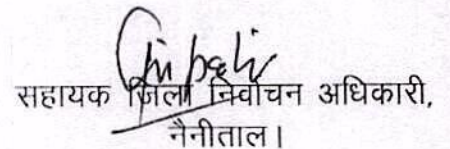 सहायक जिला निर्वाचन अधिकारी,
नैनीताल।